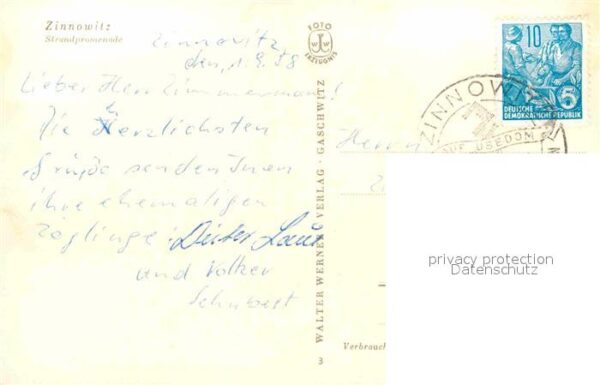 Zinnowitz
Strandpromenade
Zinnowitz
den, 1.9.58
Lieber Herr Zimmermann!
Die Herzlichsten
Grüße senden Ihnen
ihre ehemaligen
Zöglinge: Dieter Laur
und Volker
Schubert
FOTO
ERZEUGNIS
WALTER WERNER VERLAG · GASCHWITZ
3
Herrn
Verbrauch
10
5
DEUTSCHE
DEMOKRATISCHE REPUBLIK
ZINNOW
AUF USEDOM
privacy protection
Datenschutz